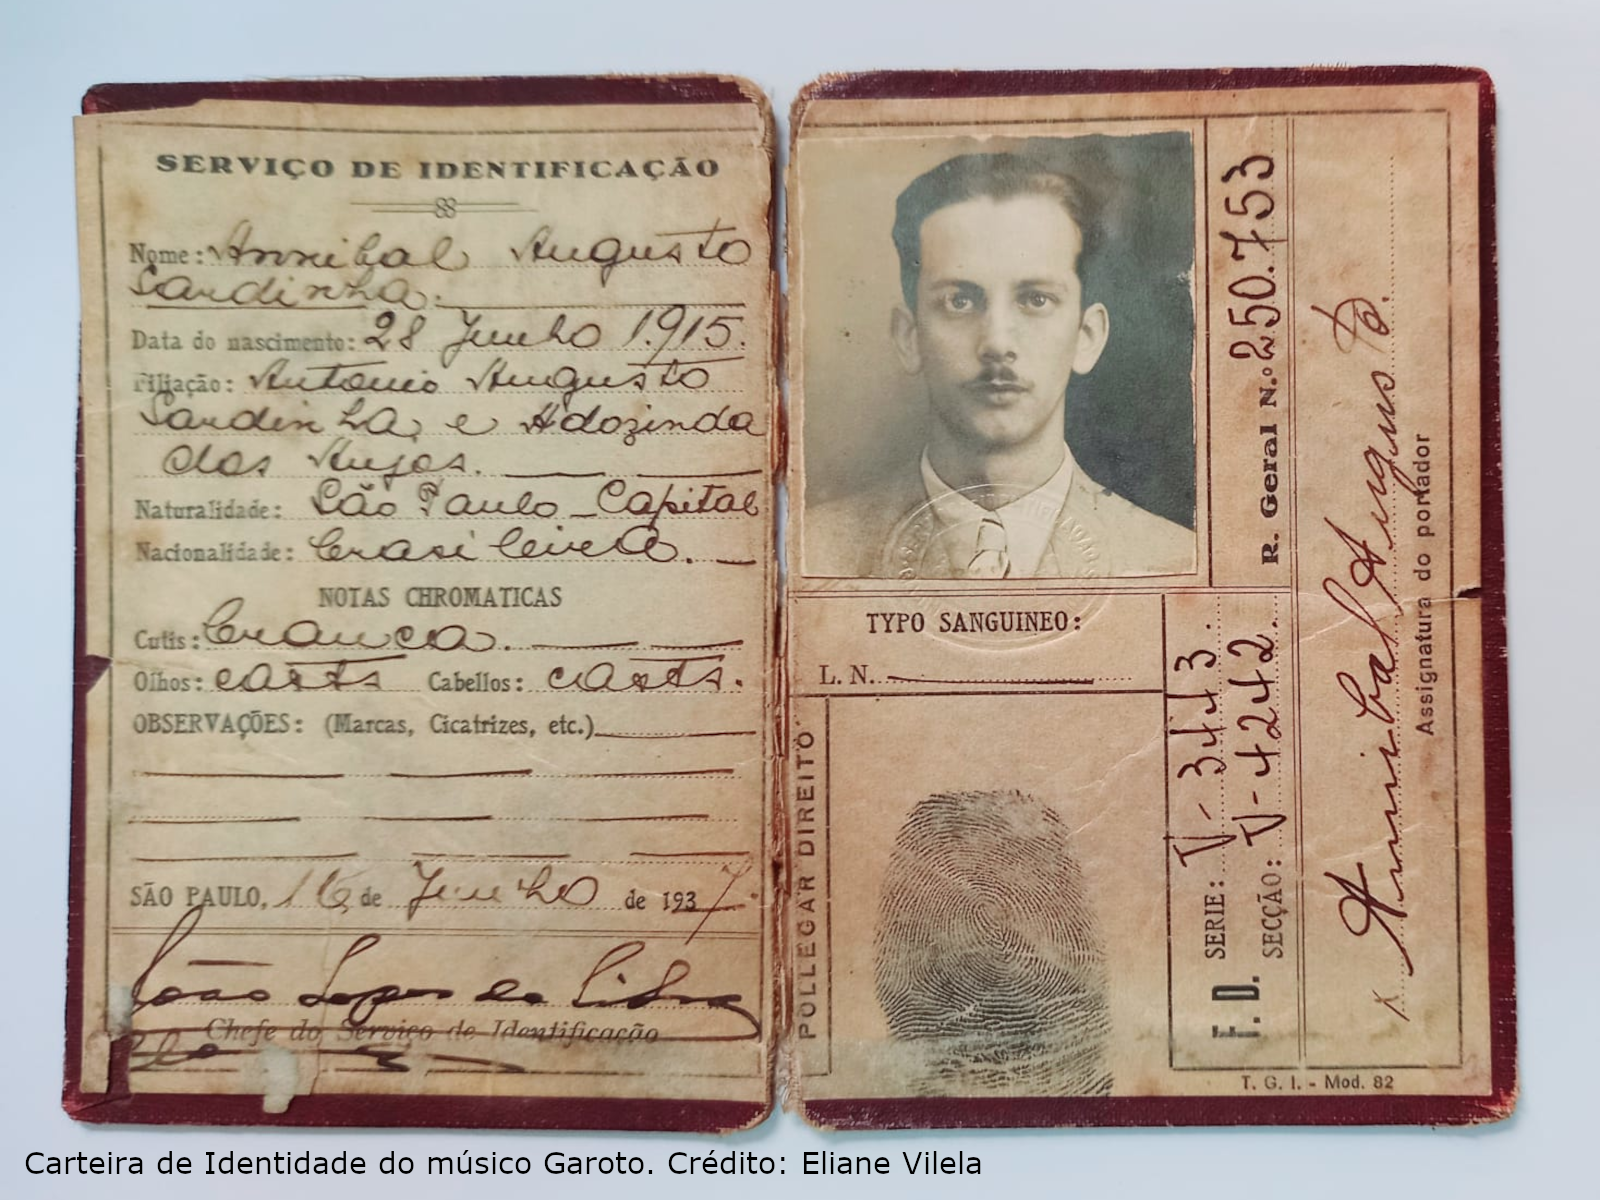 SERVIÇO DE IDENTIFICAÇÃO
Nome: Annibal Augusto
Sardinha.
Data do nascimento: 28 Junho 1.915.
Filiação: Antonio Augusto
Sardinha, e Adozinda
dos Anjos.
Naturalidade: São Paulo - Capital
Nacionalidade: brasileira.
NOTAS CHROMATICAS
Cutis: branca.
Olhos: casts Cabellos: casts.
OBSERVAÇÕES: (Marcas, Cicatrizes, etc.)
SÃO PAULO, 16 de Junho de 1937.
João Lopes da Silva
Chefe do Serviço de Identificação
R. Geral N.º 250.753
TYPO SANGUINEO:
L. N.
POLLEGAR DIREITO
F. D.
SERIE: V-3443
SECÇÃO: V-4242
x Annibal Augusto
Assignatura do portador
T. G. I. - Mod. 82
Carteira de Identidade do músico Garoto. Crédito: Eliane Vilela